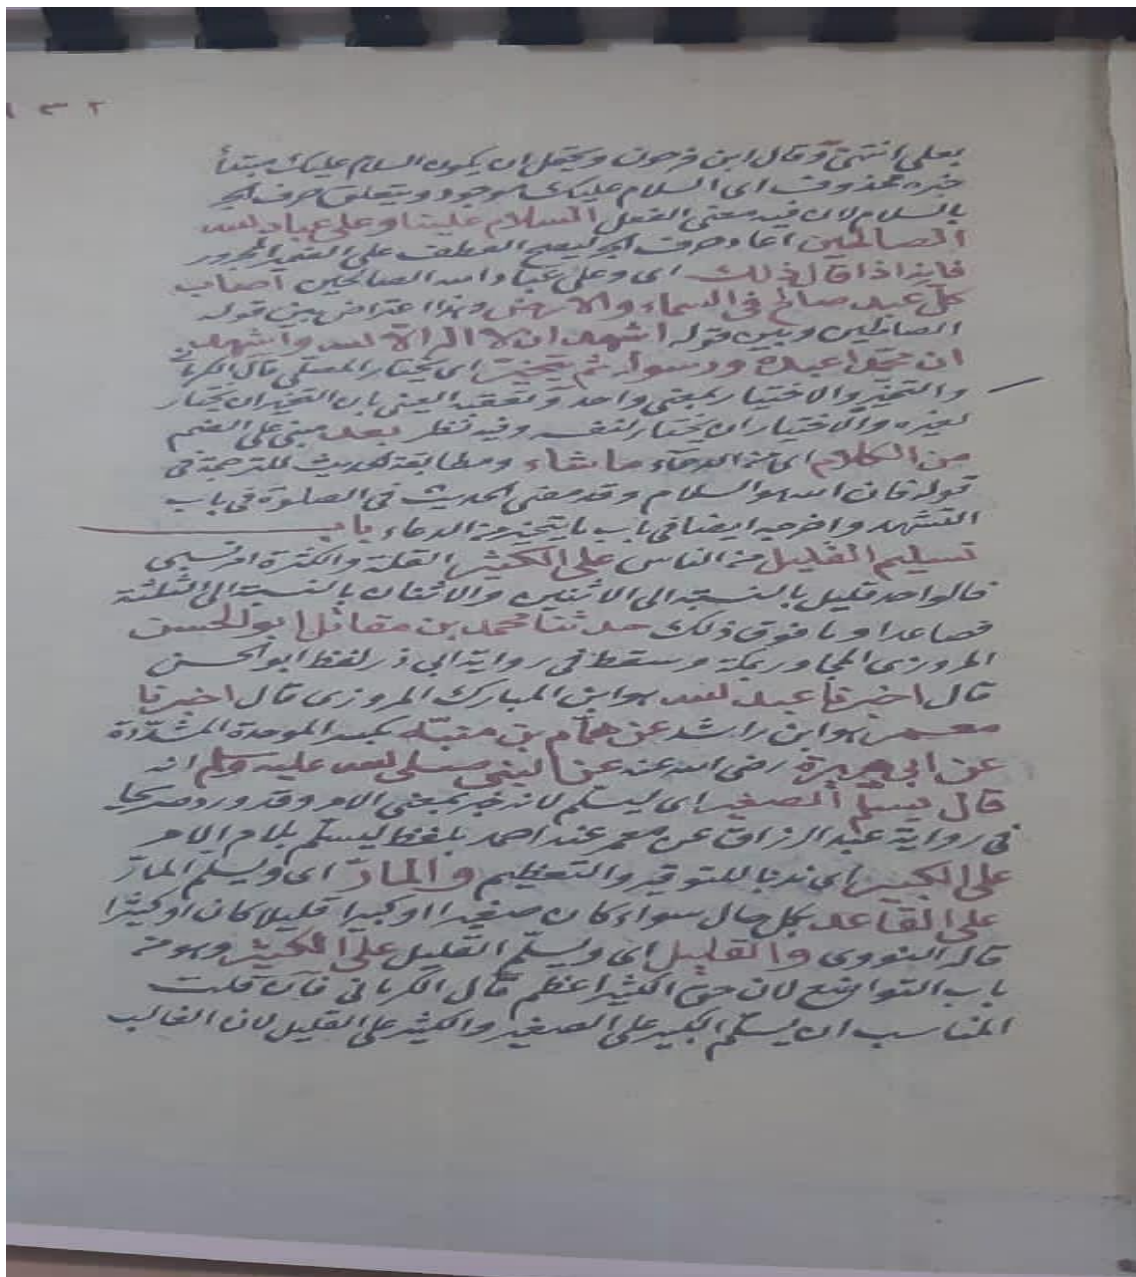 ١٣٢
بعلي انتهى وقال ابن فرحون ويحتمل ان يكون السلام عليك مبتدأ
خبره محذوف اى السلام عليك موجود ويتعلق حرف الجر
بالسلام لان فيه معنى الفعل السلام علينا وعلى عباد الله
الصالحين اعاد حرف الجر ليصح العطف على الضمير المجرور
فانه اذا قال ذلك اى وعلى عباد الله الصالحين اصاب
كل عبد صالح فى السماء والارض وهذا اعتراض بين قوله
الصالحين وبين قوله اشهد ان لا اله الا الله واشهد
ان محمدا عبده ورسوله ثم يتخير اى يختار المصلى قال الكرمانى
والتخير والاختيار بمعنى واحد وتعقبه العينى بان التخير ان يختار
لغيره والاختيار ان يختار لنفسه وفيه نظر بعد مبنى على الضم
من الكلام اى من الدعاء ما شاء ومطابقة الحديث للترجمة فى
قوله فان الله هو السلام وقد مضى الحديث فى الصلوة فى باب
التشهد واخرجه ايضا فى باب ما يتخير من الدعاء باب
تسليم القليل من الناس على الكثير القلة والكثرة امر نسبى
فالواحد قليل بالنسبة الى الاثنين والاثنان بالنسبة الى الثلثة
فصاعدا وما فوق ذلك حدثنا محمد بن مقاتل ابو الحسن
المروزى المجاور بمكة وسقط فى رواية ابى ذر لفظ ابو الحسن
قال اخبرنا عبد الله هو ابن المبارك المروزى قال اخبرنا
معمر هو ابن راشد عن همام بن منبه بكسر الموحدة المشددة
عن ابى هريرة رضى الله عنه عن النبى صلى الله عليه وسلم انه
قال يسلم الصغير اى ليسلم لانه خبر بمعنى الامر وقد ورد صريحا
فى رواية عبد الرزاق عن معمر عند احمد بلفظ ليسلم بلام الامر
على الكبير اى ندبا للتوقير والتعظيم والمار اى ويسلم المار
على القاعد بكل حال سواء كان صغيرا او كبيرا قليلا كان او كثيرا
قاله النووى والقليل اى ويسلم القليل على الكثير وهو من
باب التواضع لان حق الكثير اعظم قال الكرمانى فان قلت
المناسب ان يسلم الكبير على الصغير والكثير على القليل لان الغالب